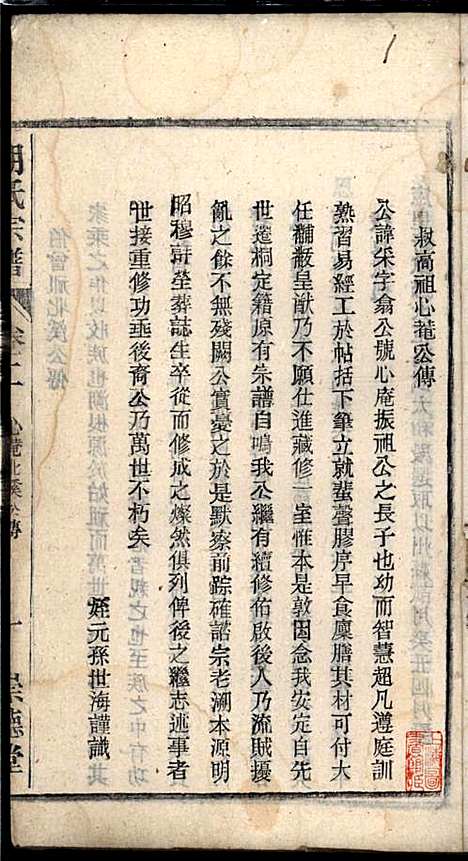 1
叔高祖心菴公傳
公諱采字翕公號心庵振祖公之長子也幼而智慧超凡遵庭訓
熟習易經工於帖括下筆立就蜚聲膠序早食廩膳其材可付大
任黼黻皇猷乃不願仕進藏修一室惟本是敦因念我安定自一
世遷桐定籍原有朱譜自鳴我公繼有續修佑啟後人乃流賊擾
亂之餘不無殘闕公實憂之於是默察前踪確諮宗老溯本源明
昭穆辨塋葬誌生卒從而修成之燦然俱列俾後之繼志述事者
世接重修功垂後裔公乃萬世不朽矣
姪元孫世海謹識
胡氏宗譜
卷二
心菴北溪公傳
一
崇德堂